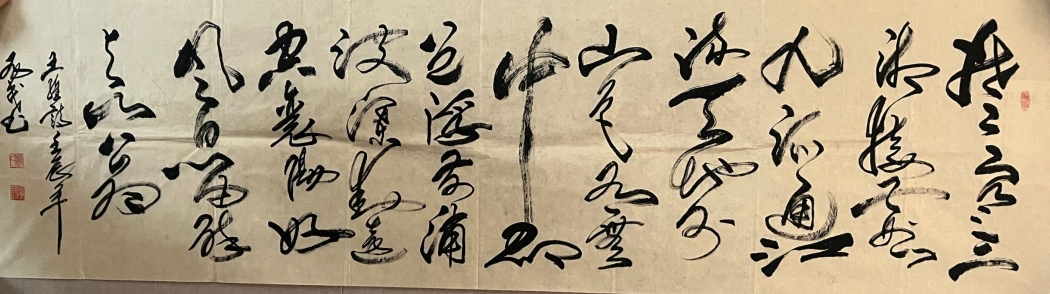 楚塞三
湘接荆门
九派通江
流天地外
山色有无
中郡
邑浮前浦
波澜动远
空襄阳好
风日留醉
与山翁
王维诗壬辰年
书